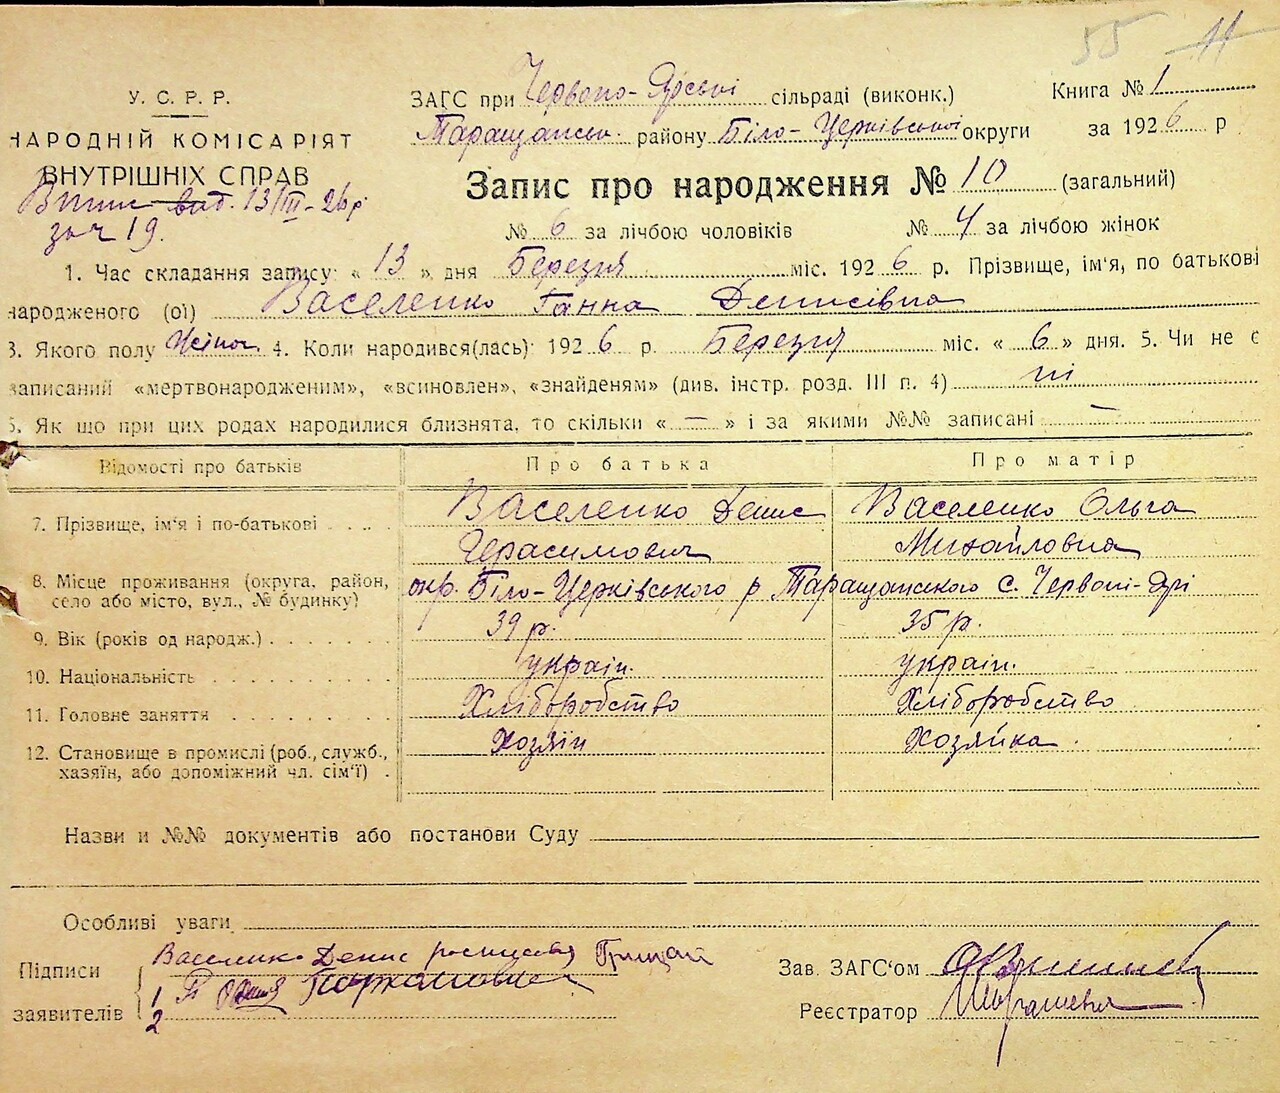 55 11
У. С. Р. Р.
НАРОДНІЙ КОМІСАРІЯТ
ВНУТРІШНІХ СПРАВ
Впис вид. 13/III-26 р
за ч 19.
ЗАГС при Червоно-Ярські сільраді (виконк.)
Таращансь. району Біло-Церківської округи
Книга № 1
за 1926 р
Запис про народження № 10 (загальний)
№ 6 за лічбою чоловіків № 4 за лічбою жінок
1. Час складання запису: « 13 » дня Березня міс. 1926 р. Прізвище, ім'я, по батькові
народженого (ої) Василенко Ганна Денисівна
3. Якого полу Жіноч. 4. Коли народився(лась): 1926 р. Березня міс. « 6 » дня. 5. Чи не є
записаний «мертвонародженим», «всиновлен», «знайденям» (див. інстр. розд. III п. 4) ні
6. Як що при цих родах народилися близнята, то скільки « — » і за якими №№ записані —
Відомості про батьків Про батька Про матір
7. Прізвище, ім'я і по-батькові Василенко Денис Герасимович Василенко Ольга Михайловна
8. Місце проживання (округа, район, село або місто, вул., № будинку) окр. Біло-Церківського р Таращанского с. Червоні-Ярі
9. Вік (років од народж.) 39 р. 35 р.
10. Національність україн. україн.
11. Головне заняття Хліборобство Хліборобство
12. Становище в промислі (роб., служб., хазяїн, або допоміжний чл. сім'ї) Хозяін Хозяйка.
Назви и №№ документів або постанови Суду
Особливі уваги
Підписи заявителів
Василенко Денис Грицай
1
2
Зав. ЗАГС'ом
Реєстратор